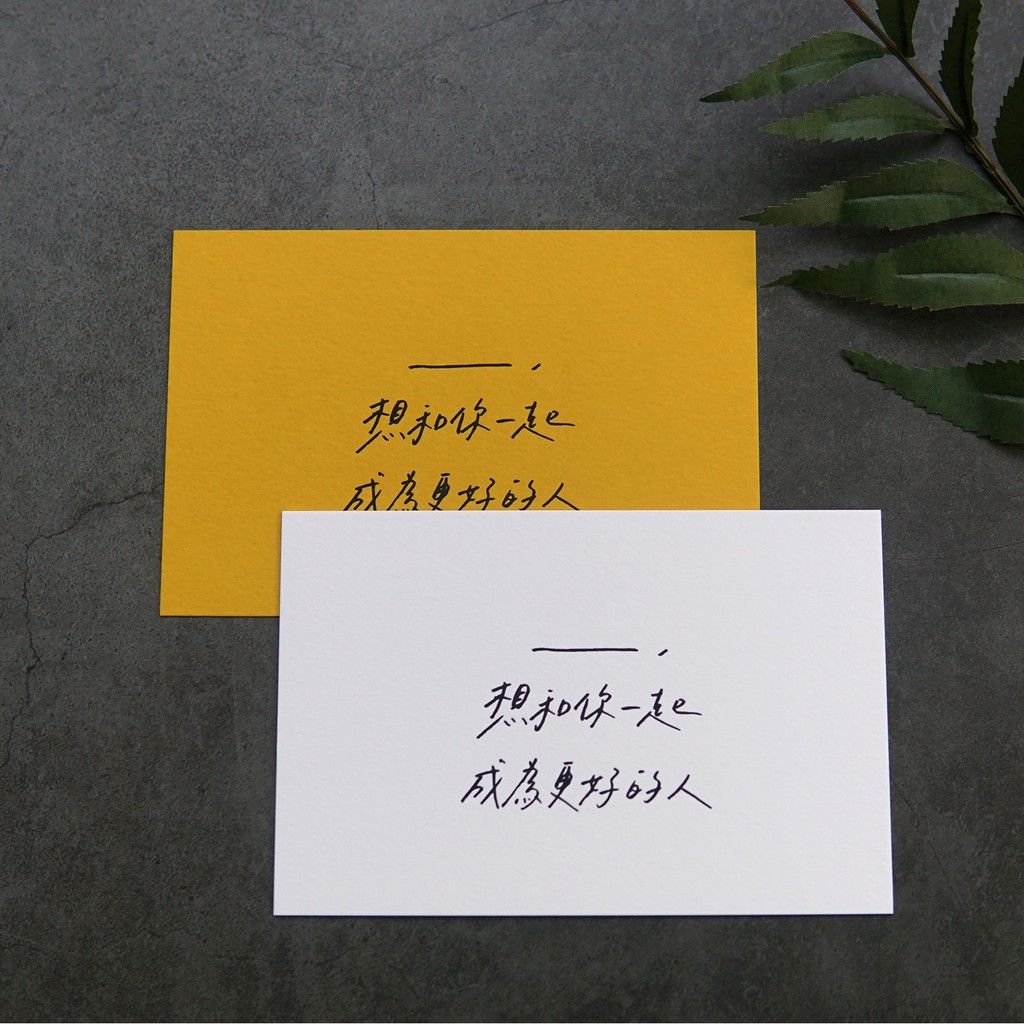 ———,
想和你一起
成為更好的人
———,
想和你一起
成為更好的人